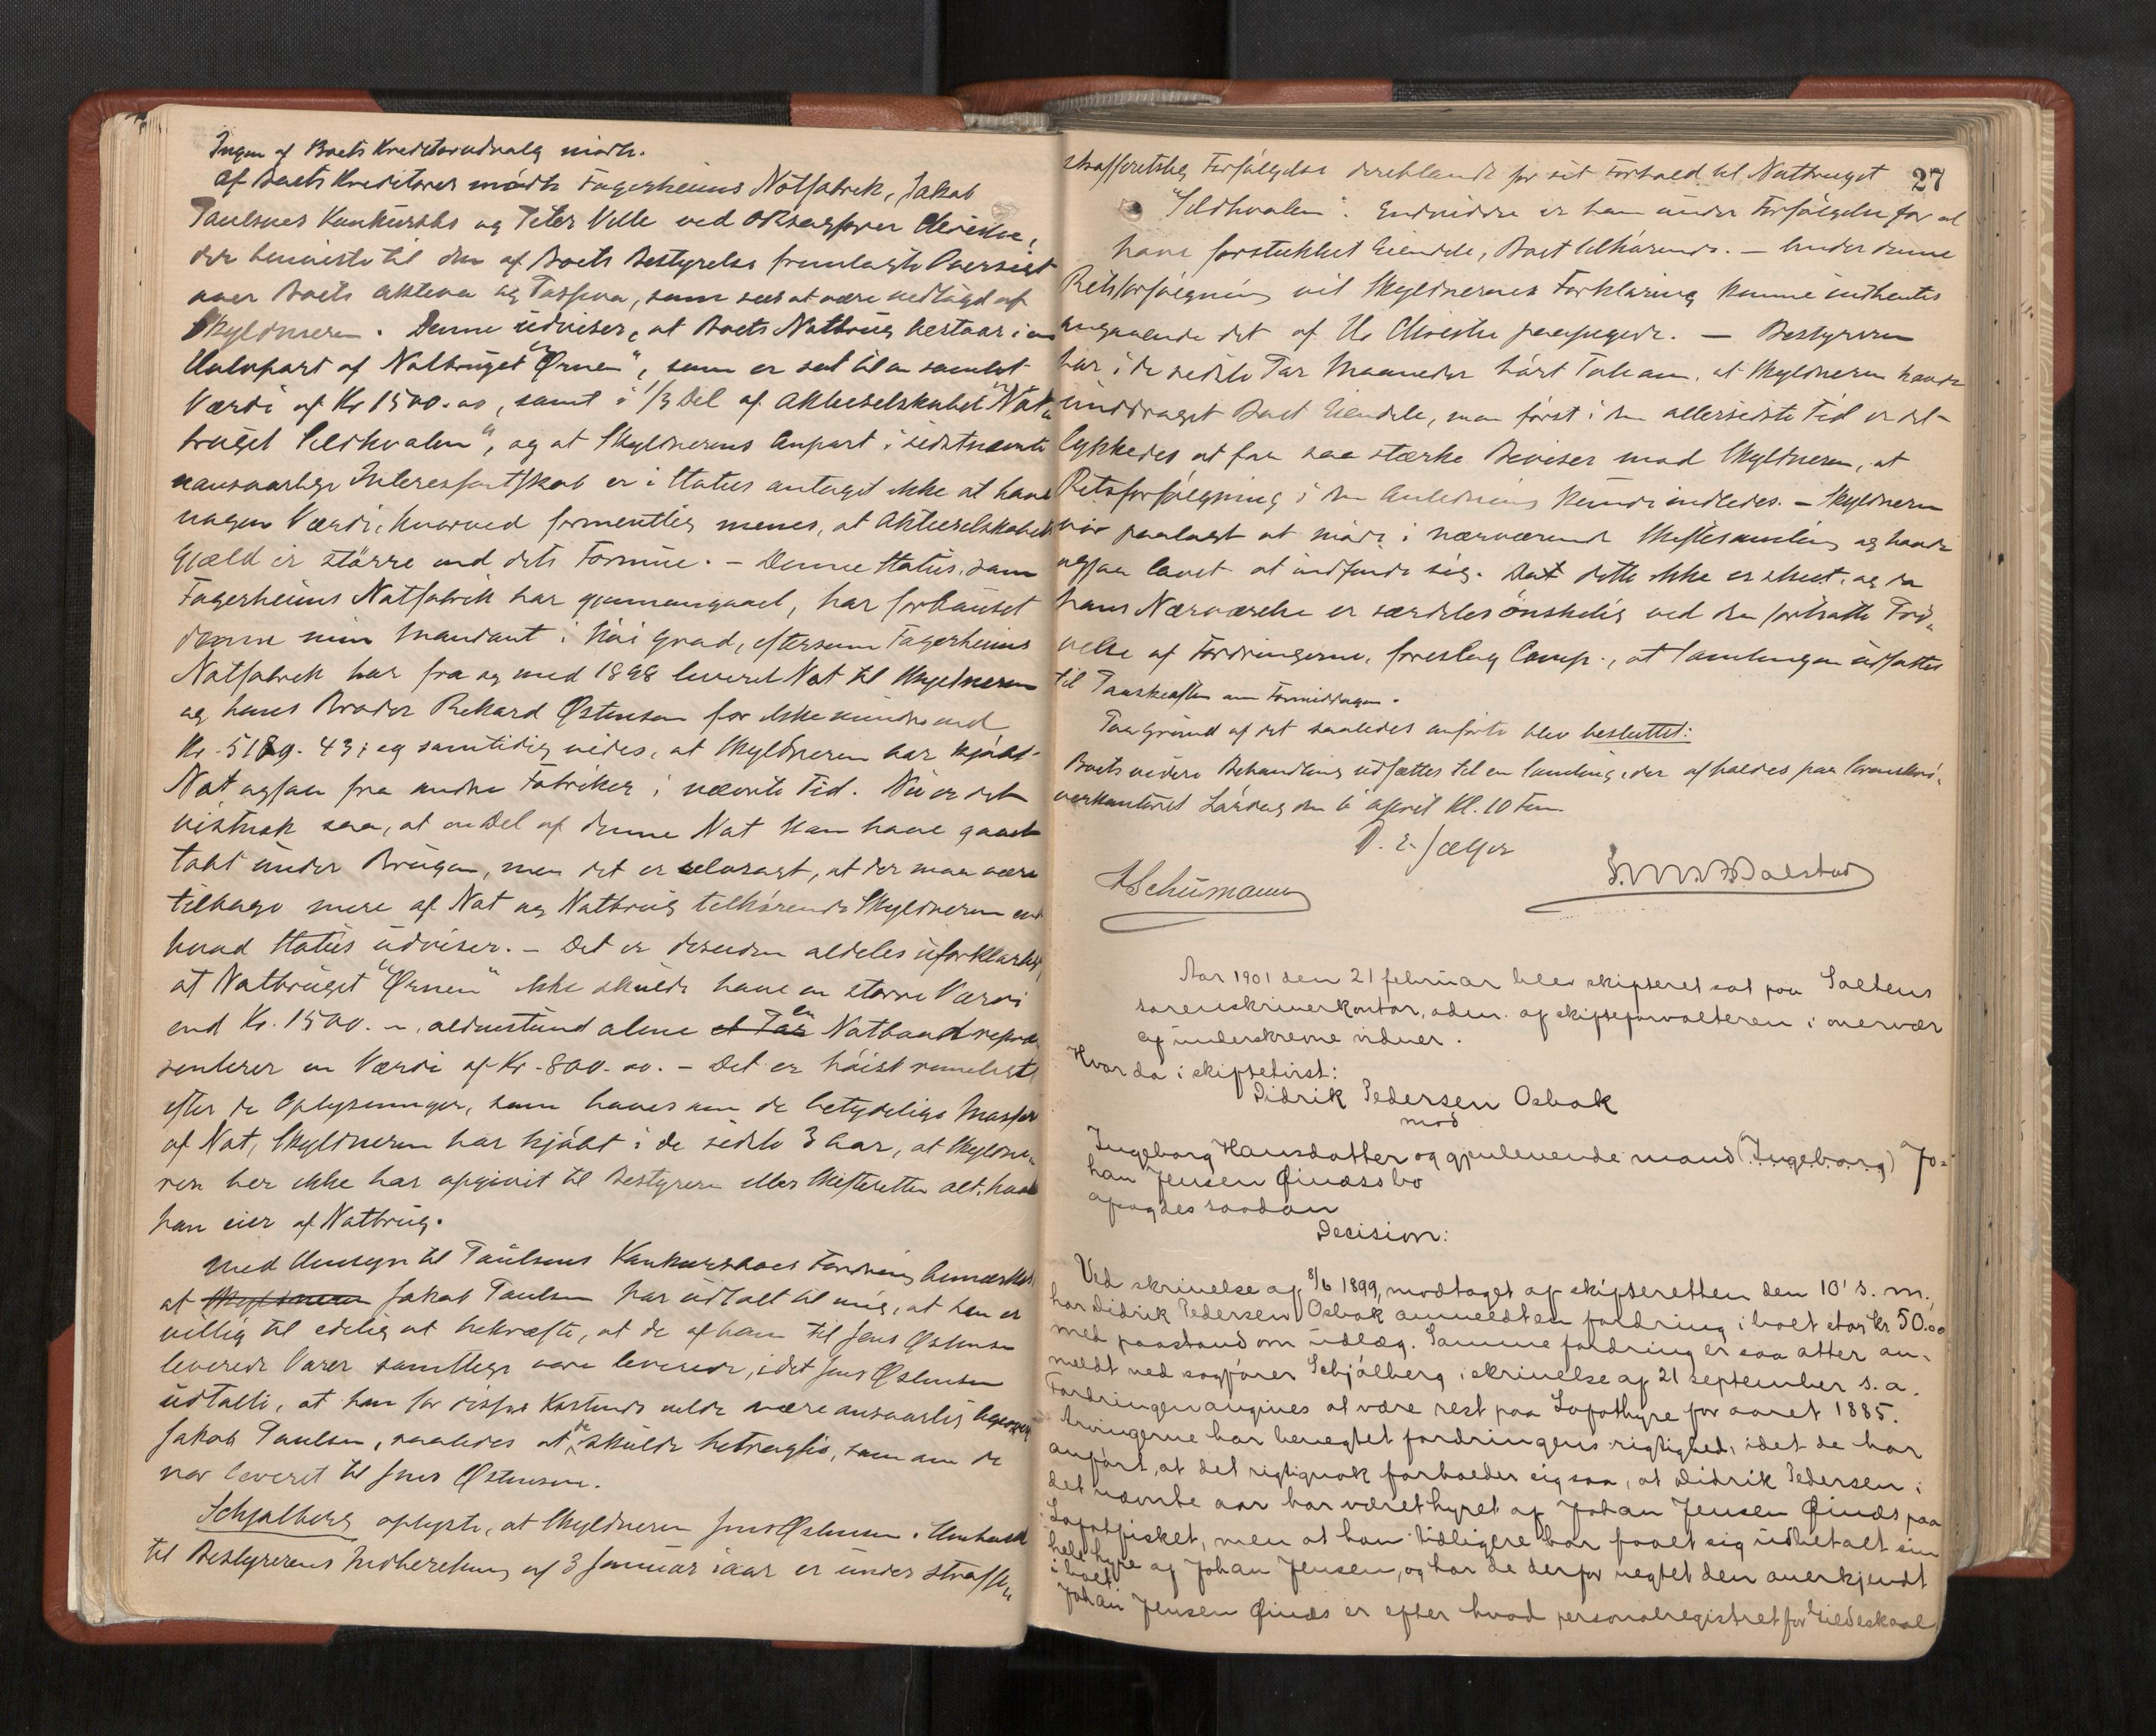 Ingen af Boets Kreditorudvalg mødte.
Af Boets Kreditorer mødte Fagerheims Notfabrik, Jakob
Paulsens Konkursbo og Peter Ville ved ORsagfører Christie,
der henviste til den af Boets Bestyrelse fremlagte Oversigt
over Boets Aktiva og Passiva, som sees at være vedtaget af
Skyldneren. Denne udviser, at Boets Notbrug bestaar i en
Halvpart af Notbruget "Ørnen", som er sat til en samlet
Værdi af Kr 1500.00, samt i 1/3 Del af Aktieselskabet "Not-
bruget Sildhvalen", og at Skyldnerens Anpart i sidstnævnte
uansvarlige Interessentskab er i Status antaget ikke at have
nogen Værdi, hvorved formentlig menes, at Aktieselskabets
Gjæld er større end dets Formue. – Denne Status, som
Fagerheims Notfabrik har gjennemgaaet, har forbauset
denne min Mandant i høi Grad, eftersom Fagerheims
Notfabrik har fra og med 1898 leveret Not til Skyldneren
og hans Broder Rikard Østensen for ikke mindre end
Kr. 5189.43; og samtidig vides, at Skyldneren har kjøbt
Not ogsaa fra andre Fabriker i nævnte Tid. Nu er det
vistnok saa, at en Del af denne Not kan have gaaet
tabt under Brugen, men det er selvsagt, at der maa være
tilbage mere af Not og Notbrug tilhørende Skyldneren end
hvad Status udviser. – Det er desuden aldeles uforklarligt,
at Notbruget "Ørnen" ikke skulde have en større Værdi
end Kr. 1500.–, aldenstund alene et Par en Notbaad repræ-
senterer en Værdi af Kr. 800.00. – Det er høist rimeligt
efter de Oplysninger, som haves om de betydelige Masser
af Not, Skyldneren har kjøbt i de sidste 3 Aar, at Skyldne-
ren her ikke har opgivet til Bestyreren eller Skifteretten alt, hvad
han eier af Notbrug.
Med Hensyn til Paulsens Konkursboes Fordring bemærkes,
at Skyldneren Jakob Paulsen har udtalt til mig, at han er
villig til edelig at bekræfte, at de af ham til Jens Østensen
leverede Varer samtlige vare leverede, idet Jens Østensen
udtalte, at han for disses Kostende vilde være ansvarlig ligeoverfor
Jakob Paulsen, saaledes at de skulde betragtes, som om de
var leveret til Jens Østensen.
Schjølberg oplyste, at Skyldneren Jens Østensen i Henhold
til Bestyrerens Indberetning af 3 Januar iaar er under straffe-
27
strafferetslig Forfølgelse deriblandt for sit Forhold til Notbruget
"Sildhvalen". Endvidere er han under Forfølgelse for at
have forstukket Eiendele, Boet tilhørende. – Under denne
Retsforfølgning vil Skyldnerens Forklaring kunne indhentes
angaaende det af Hr Christie paapegede. – Bestyreren
har i de sidste Par Maaneder hørt Tale om, at Skyldneren havde
unddraget Boet Eiendele, men først i den allersidste Tid er det
lykkedes at faa saa stærke Beviser mod Skyldneren, at
Retsforfølgning i den Anledning kunde indledes. – Skyldneren
var paalagt at møde i nærværende Skiftesamling og havde
ogsaa lovet at indfinde sig. Da dette ikke er skeet, og da
hans Nærværelse er særdeles ønskelig ved den fortsatte Prø-
velse af Fordringerne, foreslog Comp., at Samlingen udsættes
til Paaskeaften om Formiddagen.
Paa Grund af det saaledes anførte blev besluttet:
Boets videre Behandling udsættes til en Samling, der afholdes paa Sorenskri-
verkontoret Lørdag den 6 April Kl. 10 Fm.
D. E. Jælger
ASchumann
Aar 1901 den 21 februar blev skifteret sat paa Saltens
sorenskriverkontor, adm. af skifteforvalteren i overvær
af underskrevne vidner.
Hvor da i skiftetvist:
Didrik Pedersen Osbak
mod
Ingeborg Hansdatter og gjenlevende mand (Ingeborg) Jo-
han Jensen Øinæs bo
afsagdes saadan
Decision:
Ved skrivelse af 8/6 1899, modtaget af skifteretten den 10' s. m.,
har Didrik Pedersen Osbak anmeldt en fordring i boet stor kr 50.00
med paastand om udlæg. Samme fordring er saa atter an-
meldt ved sagfører Schjølberg i skrivelse af 21 september s. a.
Fordringen angives at være rest paa Lofothyre for aaret 1885.
Arvingerne har benegtet fordringens rigtighed, idet de har
anført, at det rigtignok forholder sig saa, at Didrik Pedersen i
det nævnte aar har været hyret af Johan Jensen Øinæs paa
Lofotfisket, men at han tidligere har faaet sig udbetalt sin
hele hyre af Johan Jensen, og har de derfor negtet den anerkjendt
i boet.
Johan Jensen Øinæs er efter hvad personalregistret for Gildeskaal